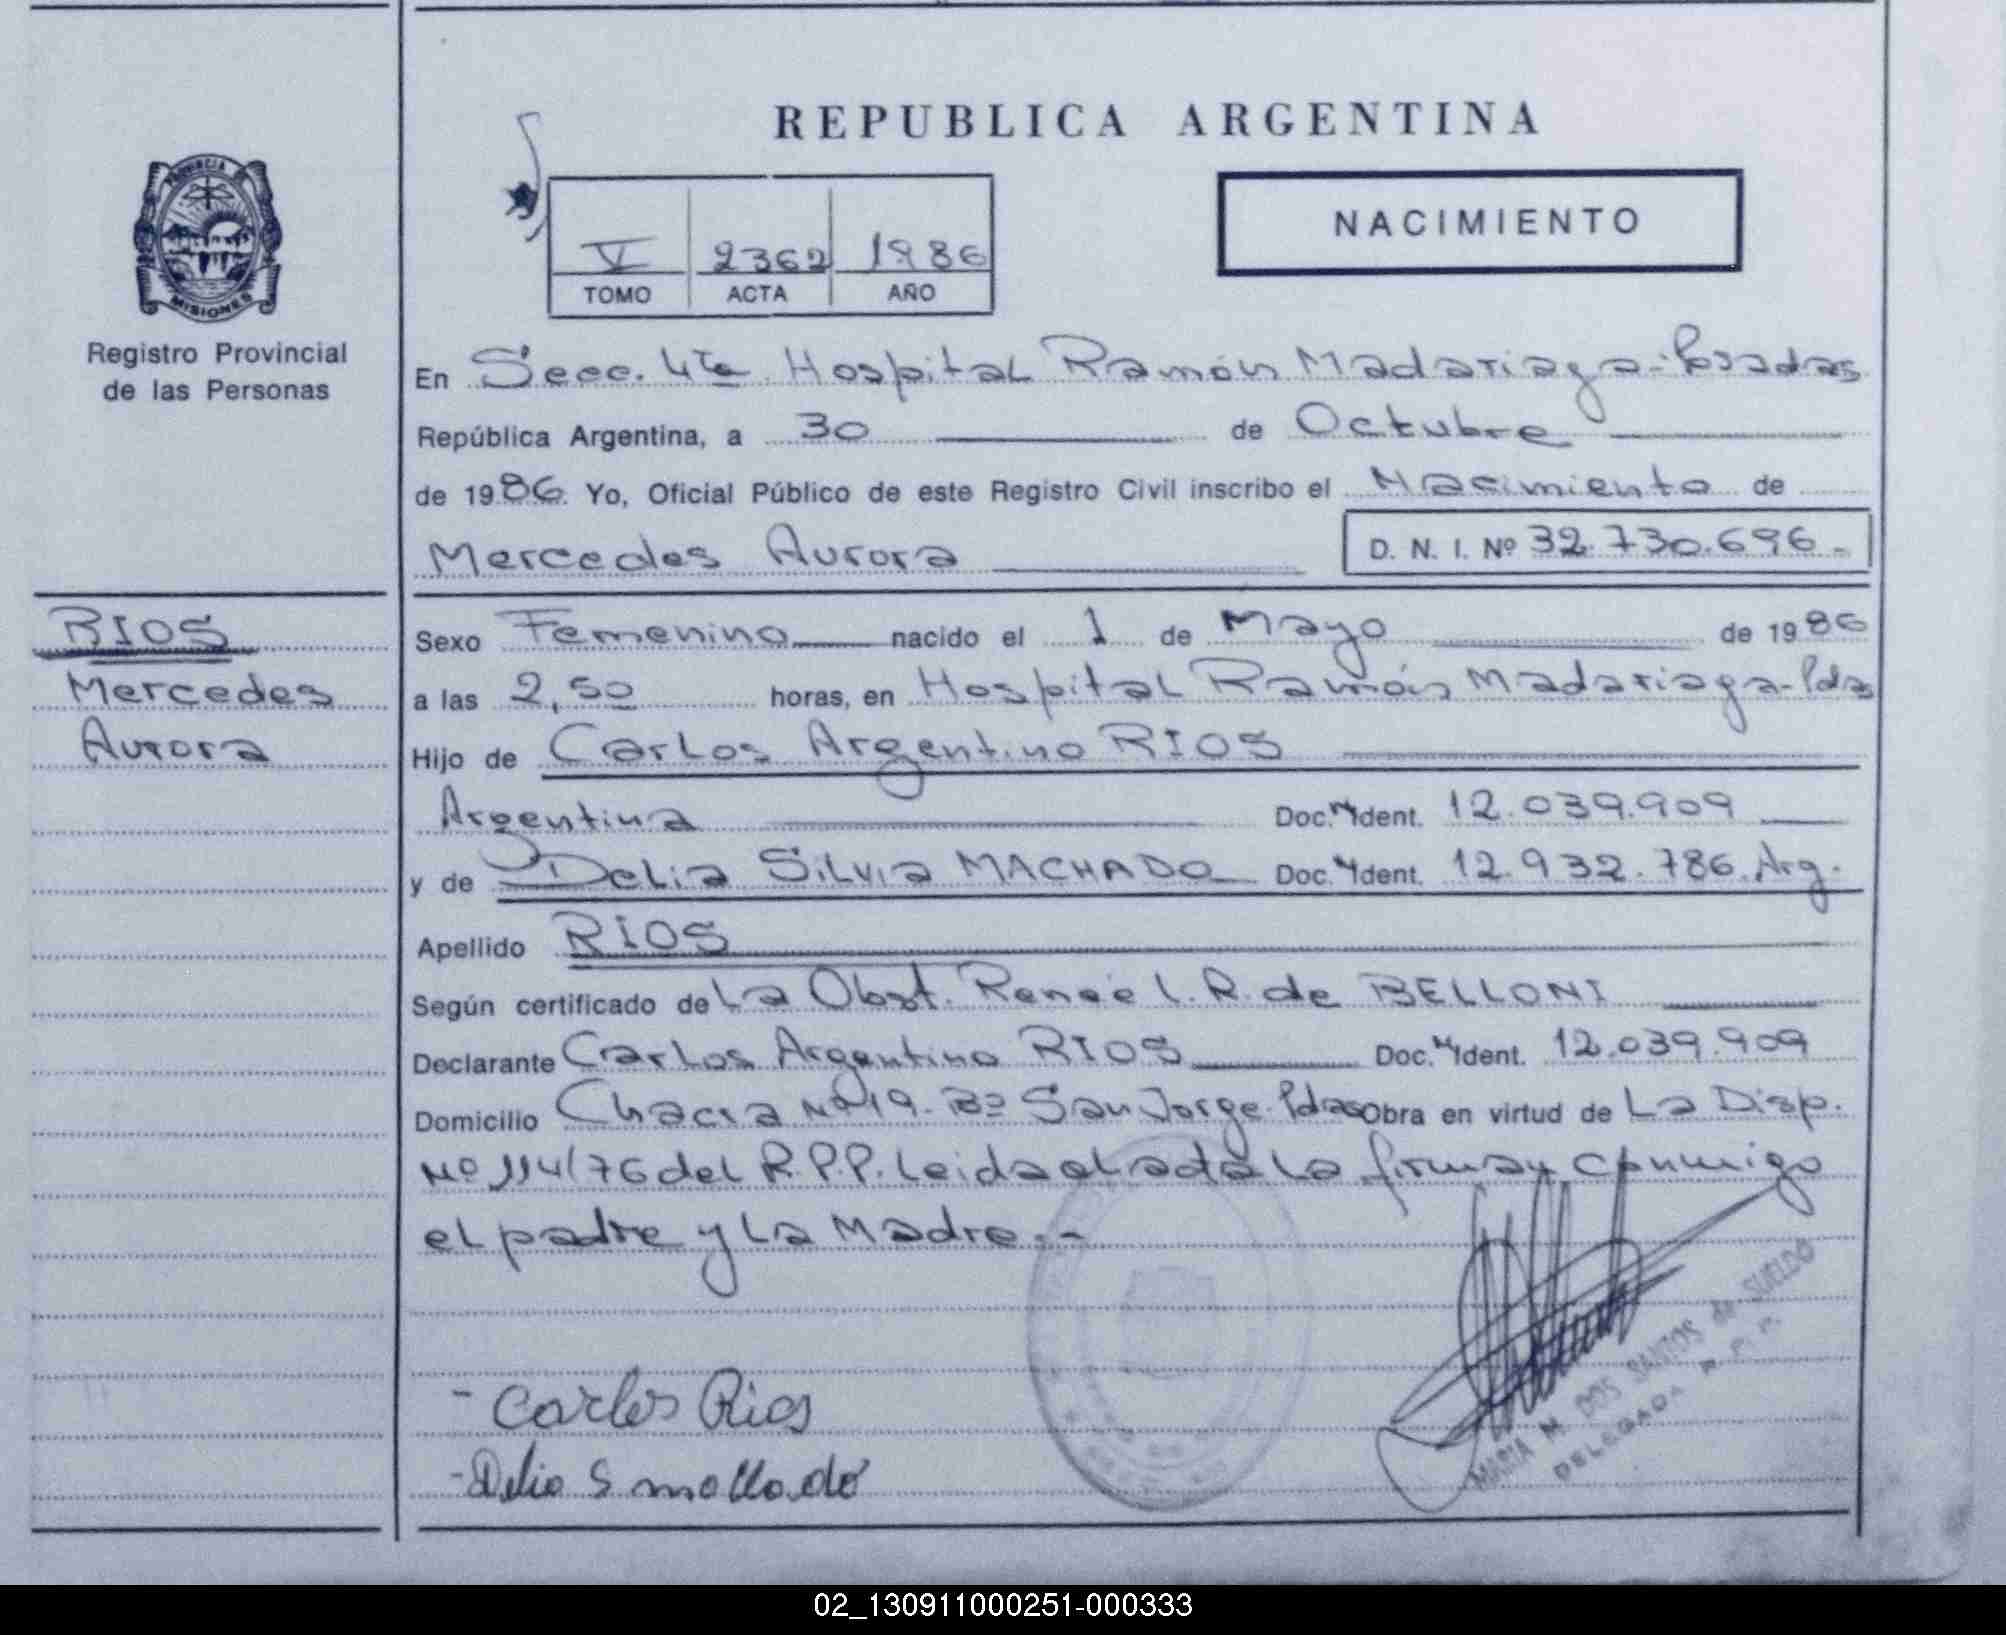 REPUBLICA ARGENTINA
PROVINCIA
MISIONES
Registro Provincial
de las Personas
NACIMIENTO
V 2362 1986
TOMO ACTA AÑO
En Secc. 4ta Hospital Ramón Madariaga-Posadas
República Argentina, a 30 de Octubre
de 1986. Yo, Oficial Público de este Registro Civil inscribo el Nacimiento de
Mercedes Aurora D. N. I. Nº 32.730.696-
RIOS
Mercedes
Aurora
Sexo Femenino nacido el 1 de Mayo de 1986
a las 2,50 horas, en Hospital Ramón Madariaga-Pdas
Hijo de Carlos Argentino RIOS
Argentina Doc. Ident. 12.039.909
y de Delia Silvia MACHADO Doc. Ident. 12.932.786 Arg.
Apellido RIOS
Según certificado de La Obst. Reneé L. R. de BELLONI
Declarante Carlos Argentino RIOS Doc. Ident. 12.039.909
Domicilio Chacra Nº 19- Bº San Jorge-Pdas Obra en virtud de La Disp.
Nº 114/76 del R.P.P. Leida el acta la firman conmigo
el padre y La Madre.-
- Carlos Rios
- Delia S
MARIA M. DOS SANTOS de SUELDO
DELEGADA R. P. P.
02_130911000251-000333